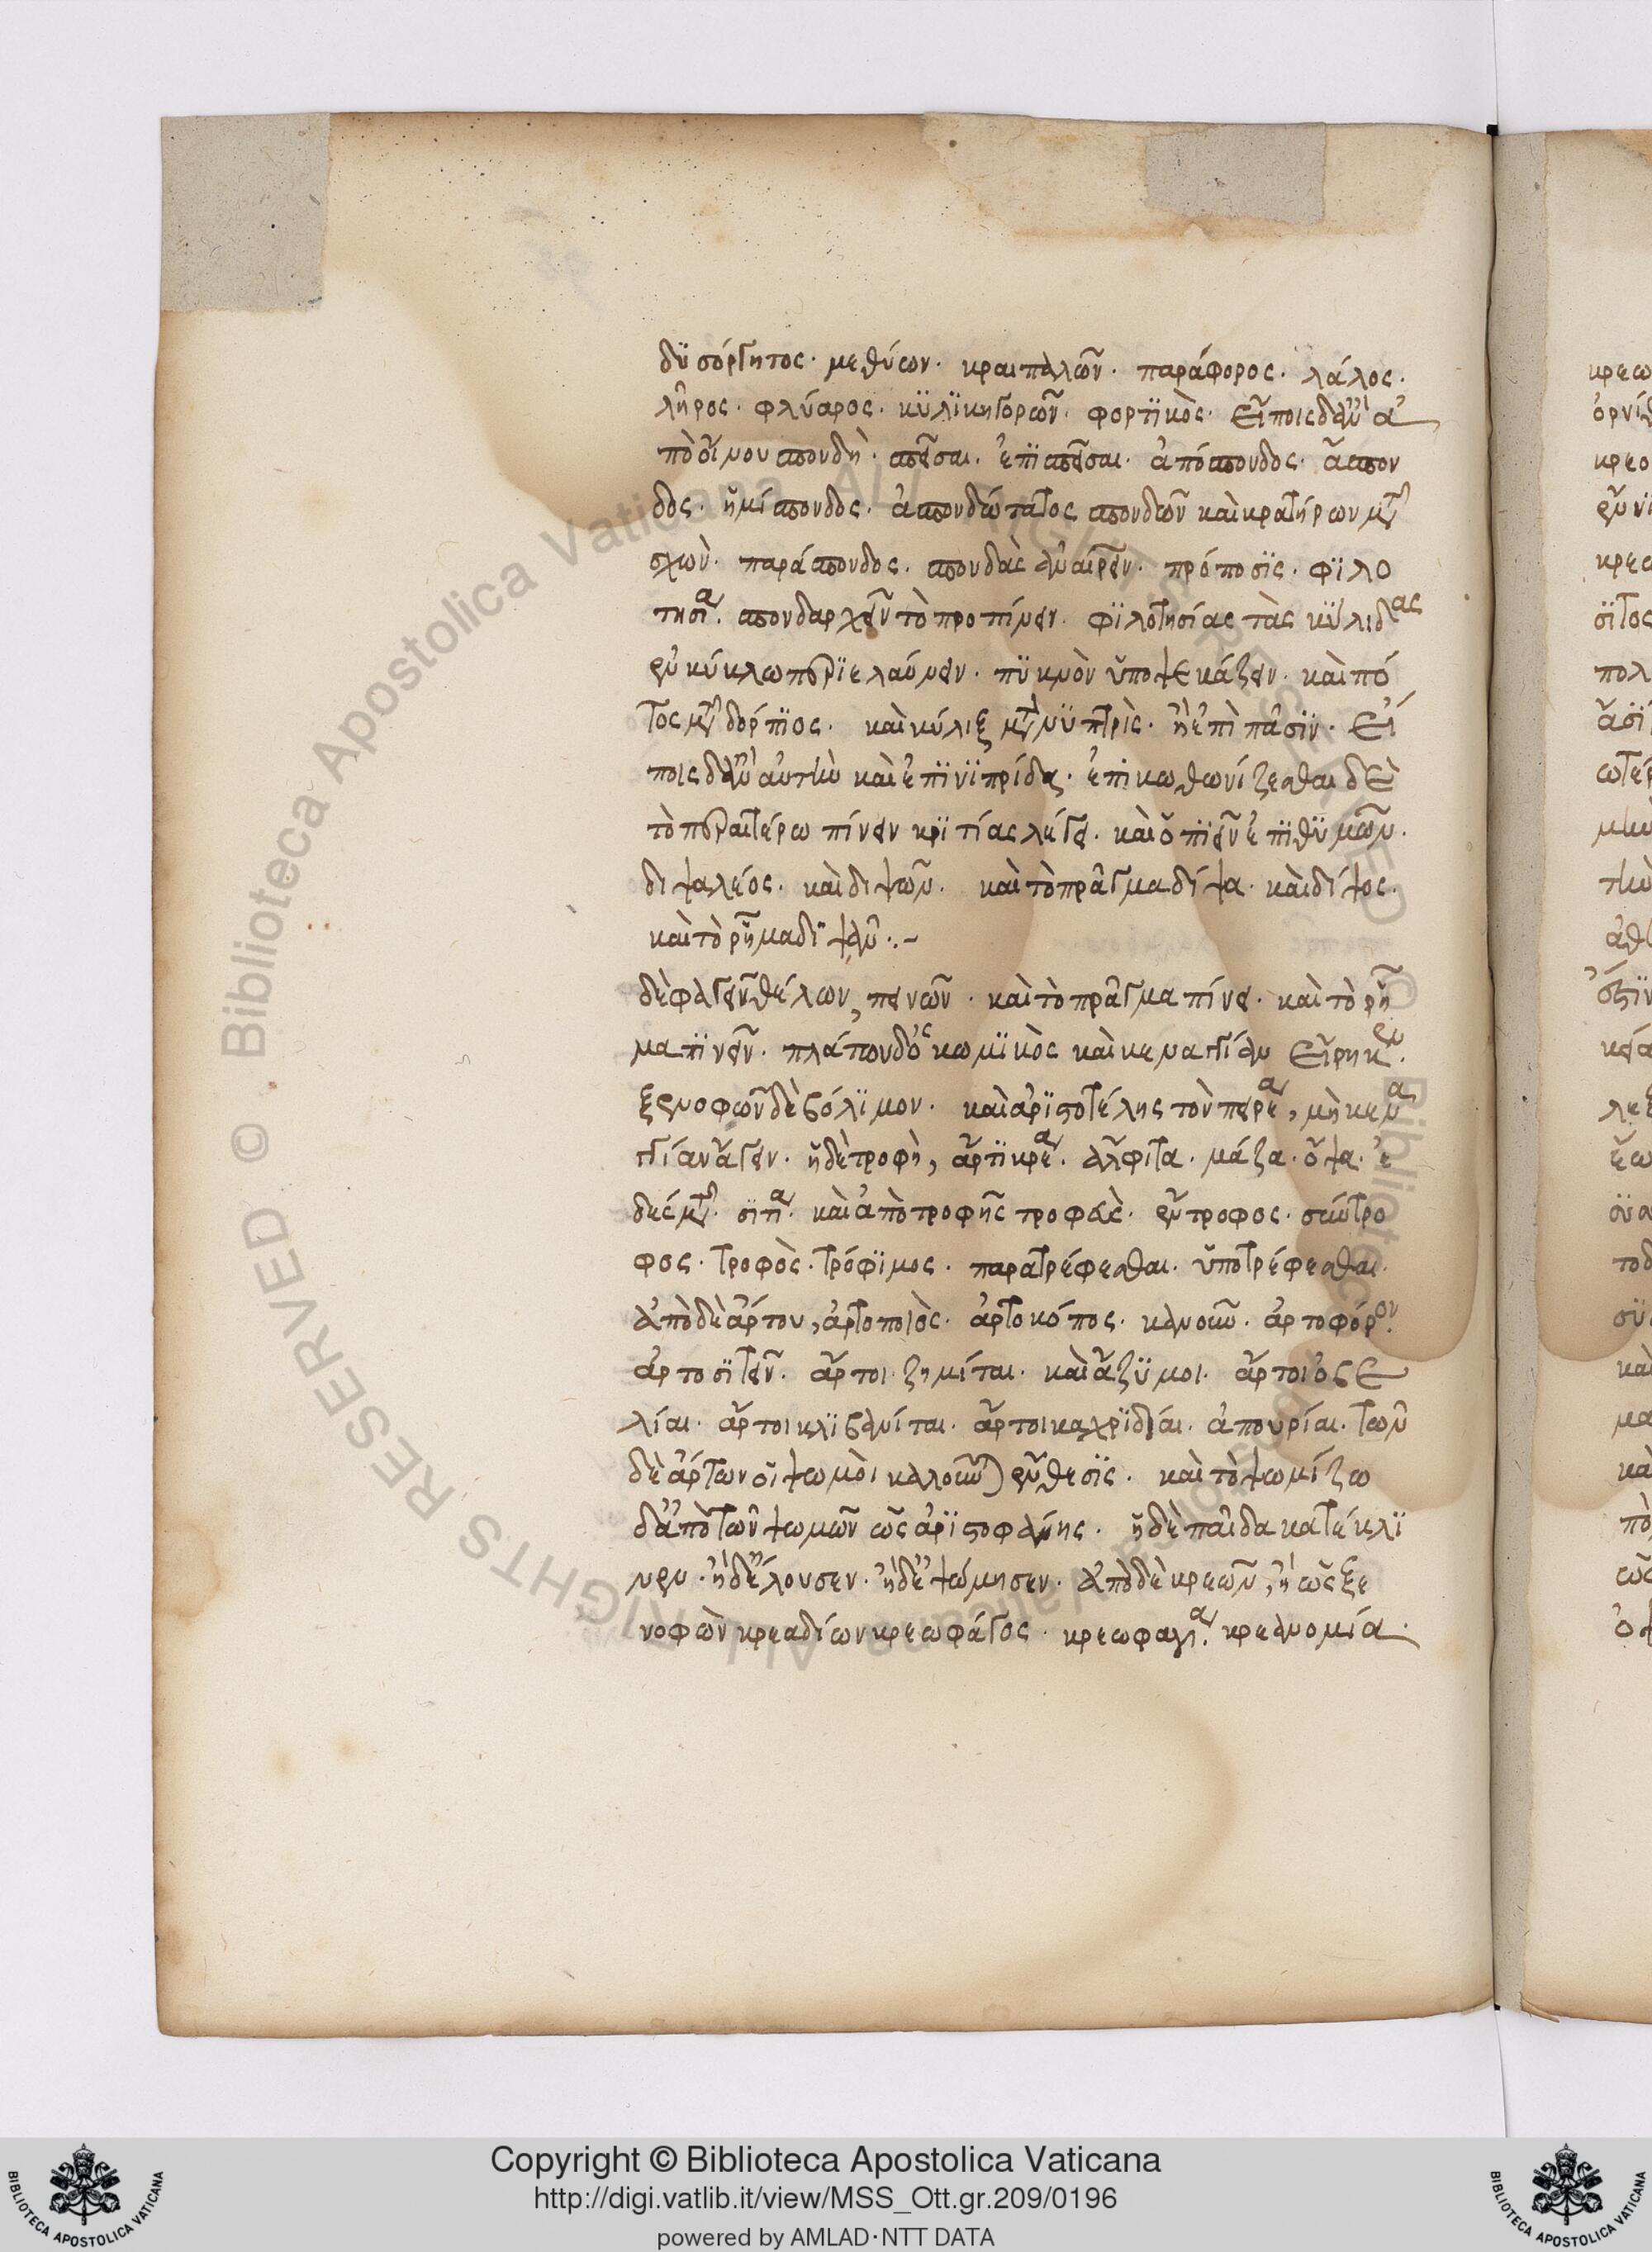 δϋσόργητος· μεθύων· κραιπαλῶν· παράφορος· λάλος·
λῆρος· φλύαρος· κϋλϊκηγορῶν· φορτϊκὸς· εἴποις δ' ἂν ἀ
πὸ οἴνου σπονδὴ· σπεῖσαι· ἐπϊσπεῖσαι· ἀπόσπονδος· ἄσπον
δος· ἡμίσπονδος· ἀσπονδώτατος σπονδῶν καὶ κρατήρων με
σχὼν· παράσπονδος· σπονδὰς ἀναιρεῖν· πρόποσϊς· φϊλο
τησία· σπονδαρχεῖν τὸ προπίνειν· φϊλοτησίας τὰς κϋλιδας
ἐν κύκλω περϊελαύνειν· πϋκνὸν ὑποψεκάζειν· καὶ πό
τος μετ δόρπϊος· καὶ κύλιξ μετ νϋπτρὶς· ἡ ἐπὶ πᾶσϊν· εἴ
ποις δ' ἂν αὐτὴν καὶ ἐπϊνϊπρίδα· ἐπικωθωνίζεσθαι δὲ
τὸ περαιτέρω πίνειν κρϊτίας λέγει· καὶ ὁ πϊεῖν ἐπϊθϋμῶν·
διψαλέος· καὶ διψῶν· καὶ τὸ πρᾶγμα δίψα· καὶ δίψος·
καὶ τὸ ρῆμα δϊψᾶν·-
δὲ φαγεῖν θέλων, πεινῶν· καὶ τὸ πρᾶγμα πίνει· καὶ τὸ ρῆ
μα πϊνεῖν· πλά που δ' ὁ κωμϊκὸς καὶ κεναγγίαν εἴρηκεν·
ξενοφῶν δὲ βόλϊμον· καὶ ἀρϊστοτέλης τὸν πειρεα, μὴ κενα
γγίαν ἄγειν· ἡ δὲ τροφὴ, ἄρτϊ κρέα· ἄλφιτα· μάζα· ὄψα· ἐ
δέσμ· σϊτία· καὶ ἀπὸ τροφῆς τροφὰς· ἔντροφος· σύντρο
φος· τροφὸς· τρόφϊμος· παρατρέφεσθαι· ὑποτρέφεσθαι·
ἀπὸ δὲ ἄρτου, ἀρτοποιὸς· ἀρτοκόπος· κανοῦν· ἀρτοφόρον·
ἀρτοσϊτεῖν· ἄρτοι ζημίται· καὶ ἄζϋμοι· ἄρτοι ὀβε
λίαι· ἄρτοι κλϊβανίται· ἄρτοι καχρϊδίαι· ἀπουρίαι· τῶν
δὲ ἄρτων οἱ ψωμοὶ καλοῦν) ἔνθεσϊς· καὶ τὸ ψωμίζω
δ' ἀπὸ τῶν ψωμῶν ὡς ἀρϊστοφάνης· ἡ δὲ παῖδα κατέκλϊ
νεν· ἡ δ' ἔλουσεν· ἡ δ' ἐψώμησεν· ἀπὸ δὲ κρεῶν, ἢ ὡς ξε
νοφὼν κρεαδίων κρεωφάγος· κρεωφαγία· κρεανομία·
Copyright © Biblioteca Apostolica Vaticana
http://digi.vatlib.it/view/MSS_Ott.gr.209/0196
powered by AMLAD·NTT DATA